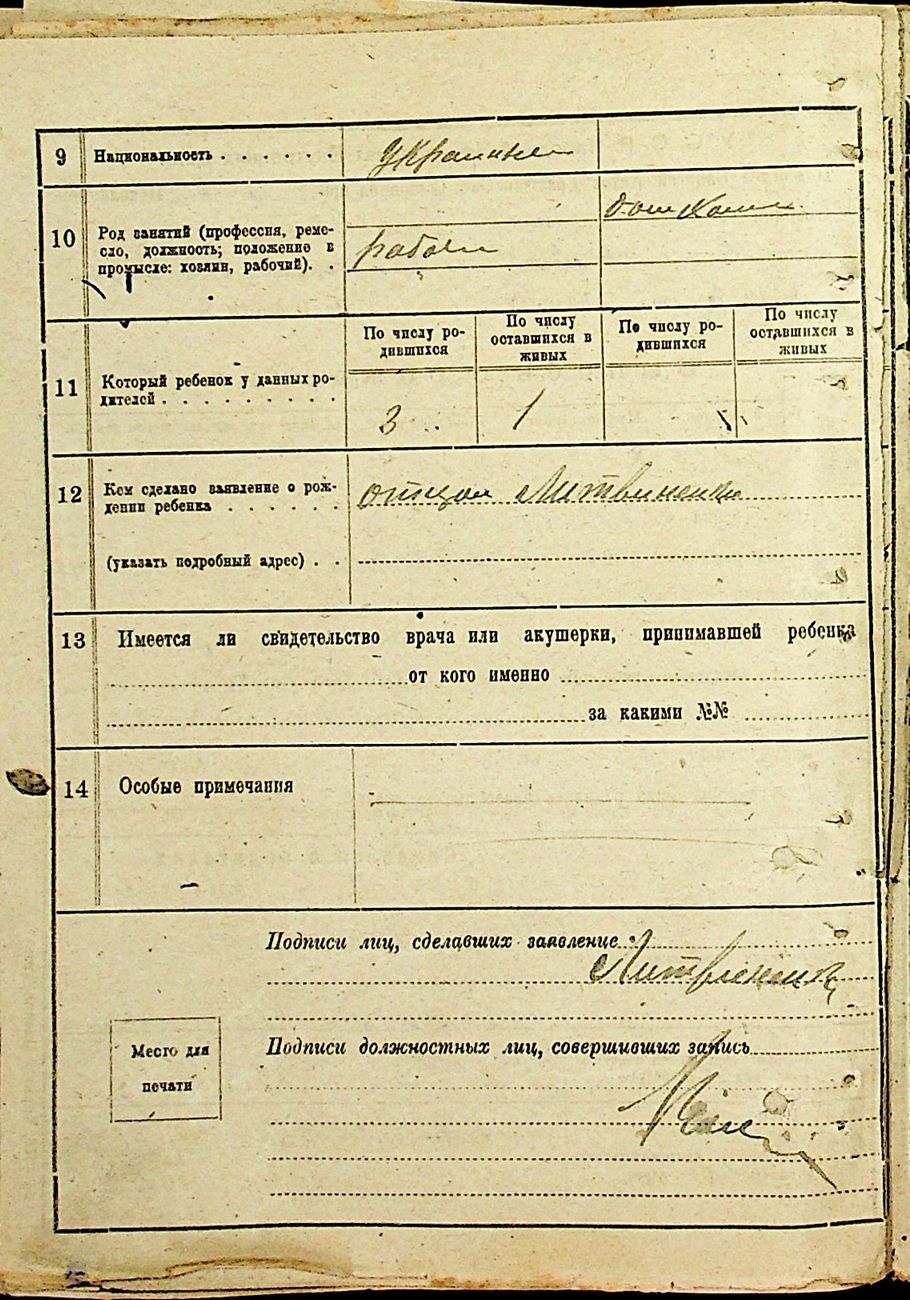 9 Национальность . . . . . . Украинцы
10 Род занятий (профессия, ремесло, должность; положение в промысле: хозяин, рабочий). .
рабочий
11 Который ребенок у данных родителей . . . . . . . . .
По числу родившихся
По числу оставшихся в живых
По числу родившихся
По числу оставшихся в живых
3 1
12 Кем сделано заявление о рождении ребенка . . . . . .
отцом Литвиненко
(указать подробный адрес) . .
13 Имеется ли свидетельство врача или акушерки, принимавшей ребенка
от кого именно
за какими №№
14 Особые примечания
Подписи лиц, сделавших заявление
Литвиненко
Место для печати
Подписи должностных лиц, совершивших запись